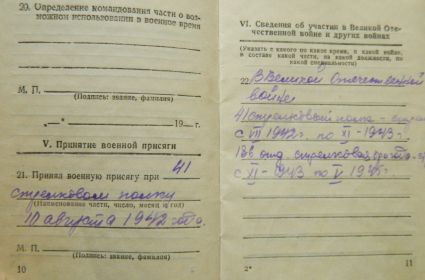 20. Определение командования части о воз-
можном использовании в военное время
М. П.
(Подпись: звание, фамилия)
„—“ 19 — г.
V. Принятие военной присяги
21. Принял военную присягу при 41
стрелковом полку
(Наименование части, число, месяц и год)
10 августа 1942 года.
М. П.
(Подпись: звание, фамилия)
10
VI. Сведения об участии в Великой Оте-
чественной войне и других войнах
(Указать с какого по какое время, в какой войне,
в составе какой части, на какой должности, по
какой специальности)
22. В Великой Отечественной
войне
41 стрелковый полк -
с VII 1942 г. по XI - 1943 г.
отд. стрелковая рота
по V
2*
11